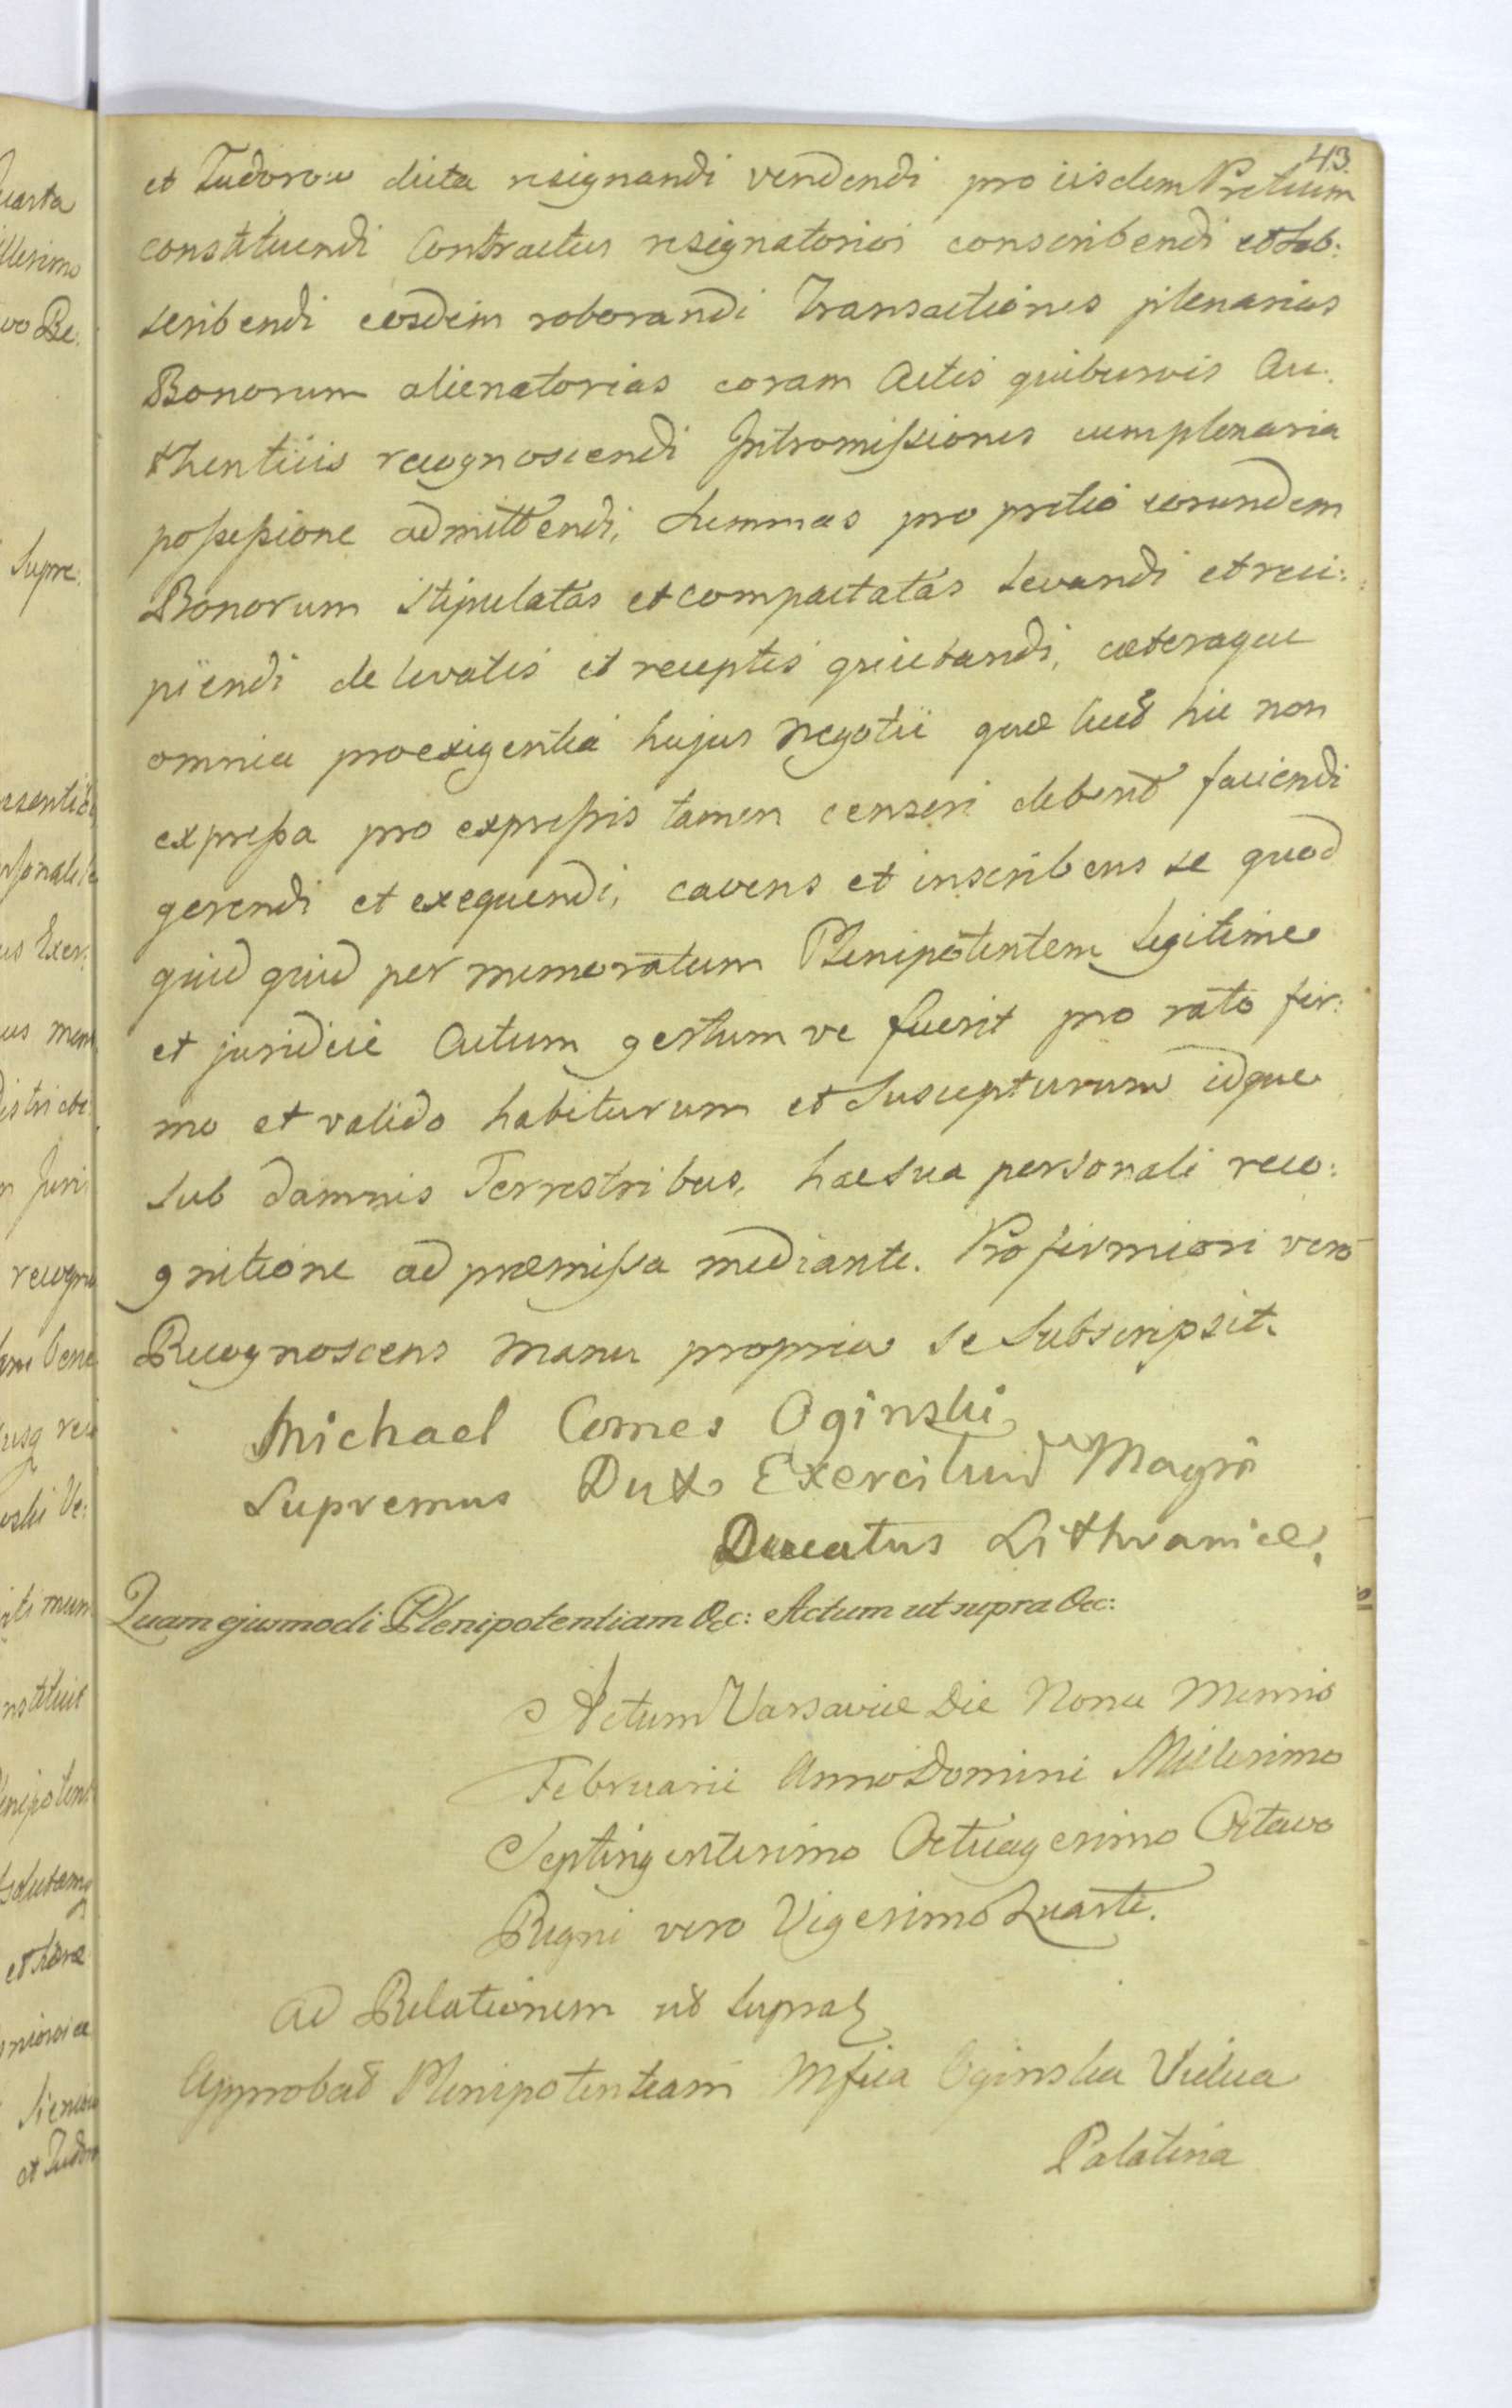 43.
et Tudorow dicta resignandi vendendi pro iisdem Pretium
constituendi Contractus resignatorios conscribendi et Sub:
scribendi eosdem roborandi Transactiones plenarias
Bonorum alienatorias coram Actis quibusvis Au:
thenticis recognoscendi Intromissiones cum plenaria
possessione admittendi, Summas pro pretio eorundem
Bonorum stipulatas et compactatas Levandi et reci:
piendi de levatis et receptis quietandi, caeteraque
omnia pro exigentia hujus Negotii quae licet hic non
expressa pro expressis tamen censeri debent faciendi
gerendi et exequendi, cavens et inscribens se quod
quid quid per memoratum Plenipotentem Legitime
et juridice Actum gestum ve fuerit pro rato fir:
mo et valido habiturum et Suscepturum idque
Sub damnis Terrestribus, hac Sua personali reco:
gnitione ad praemissa mediante. Pro firmiori vero
Recognoscens manu propria se Subscripsit.
Michael Comes Oginski
Supremus Dux Exercituum Magni
Ducatus Lithvaniae.
Quam ejusmodi Plenipotentiam &c: Actum ut supra &c:
Actum Varsaviae Die Nona Mensis
Februarii Anno Domini Millesimo
Septingentesimo Octuagesimo Octavo
Regni vero Vigesimo Quarto.
Ad Relationem ut Supra
Approbat Plenipotentiam Oginska Vidua
Palatina
uarta
llesimo
vo Be:
Supre:
us Exer:
us mem
Juri
recogn
Ve:
nstituit
et Tudor